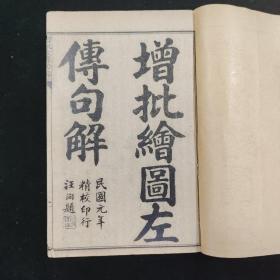 增批繪圖左
傳句解
民國元年
精校印行
汪洵題